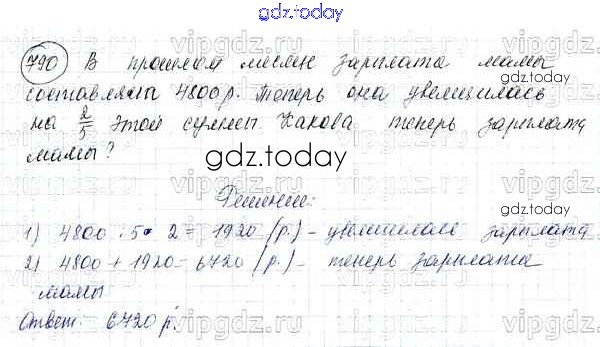 gdz.today
790 В прошлом месяце зарплата мамы
составляла 4800 р. Теперь она увеличилась
на 2/5 этой суммы. Какова теперь зарплата
мамы?
gdz.today
Решение:
1) 4800 : 5 • 2 = 1920 (р.) – увеличилась зарплата
2) 4800 + 1920 = 6720 (р.) – теперь зарплата
мамы
Ответ: 6720 р.
gdz.today
gdz.today
gdz.today
vipgdz.ru